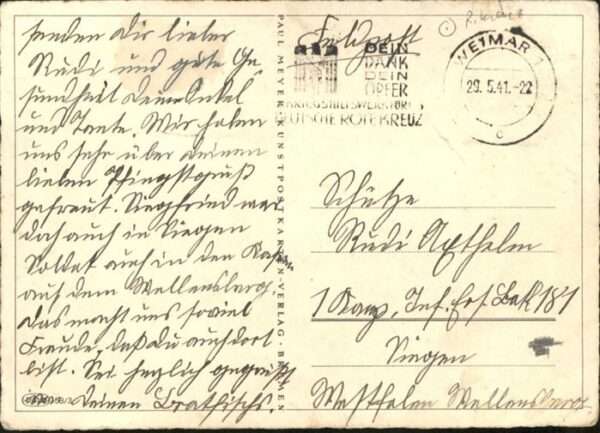 senden Dir lieber
Rudi und gute Ge,
sundheit Dein Onkel
und Tante. Wir haben
uns sehr über deinen
lieben Pfingstgruß
gefreut. Siegfried war
doch auch in Siegen
Soldat auch in den
auf dem Wellersberg.
das macht uns soviel
Freude, daß Du auch dort
bist. Sei herzlich gegrüßt
Deinen
PAUL MEYER, KUNSTPOSTKARTEN-VERLAG
Feldpost
DEIN
DANK
DEIN
OPFER
KRIEGSHILFSWERK FÜR
DEUTSCHE ROTE KREUZ
WEIMAR 1
29.5.41.-22
c
Schütze
Rudi Apthelm
1 Komp, Inf. Ers. Batl 181
Siegen
Westfalen Wellersberg